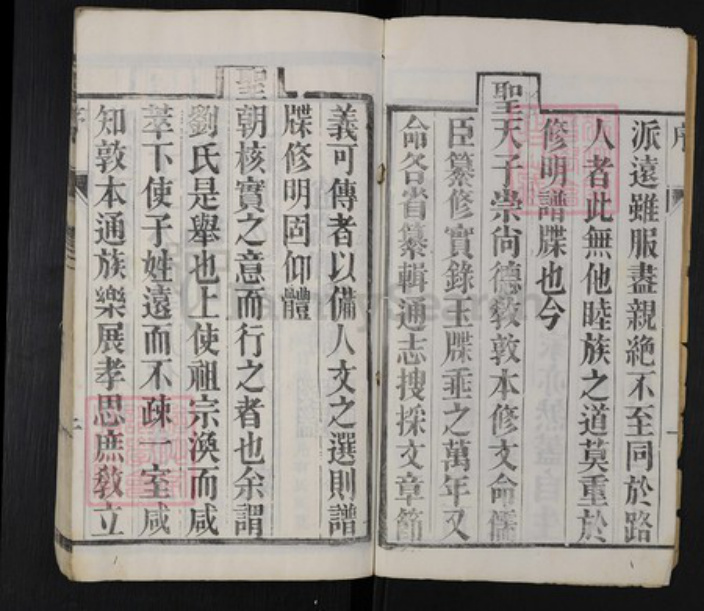 序
派遠雖服盡親絶不至同於路
人者此無他睦族之道莫重於
修明譜牒也今
聖天子崇尚德教敦本修文命儒
臣纂修實錄玉牒垂之萬年又
命各省纂輯通志搜採文章節
義可傳者以備人文之選則譜
牒修明固仰體
聖朝核實之意而行之者也余謂
劉氏是舉也上使祖宗渙而咸
萃下使子姓遠而不疎一室咸
知敦本通族樂展孝思庶教立